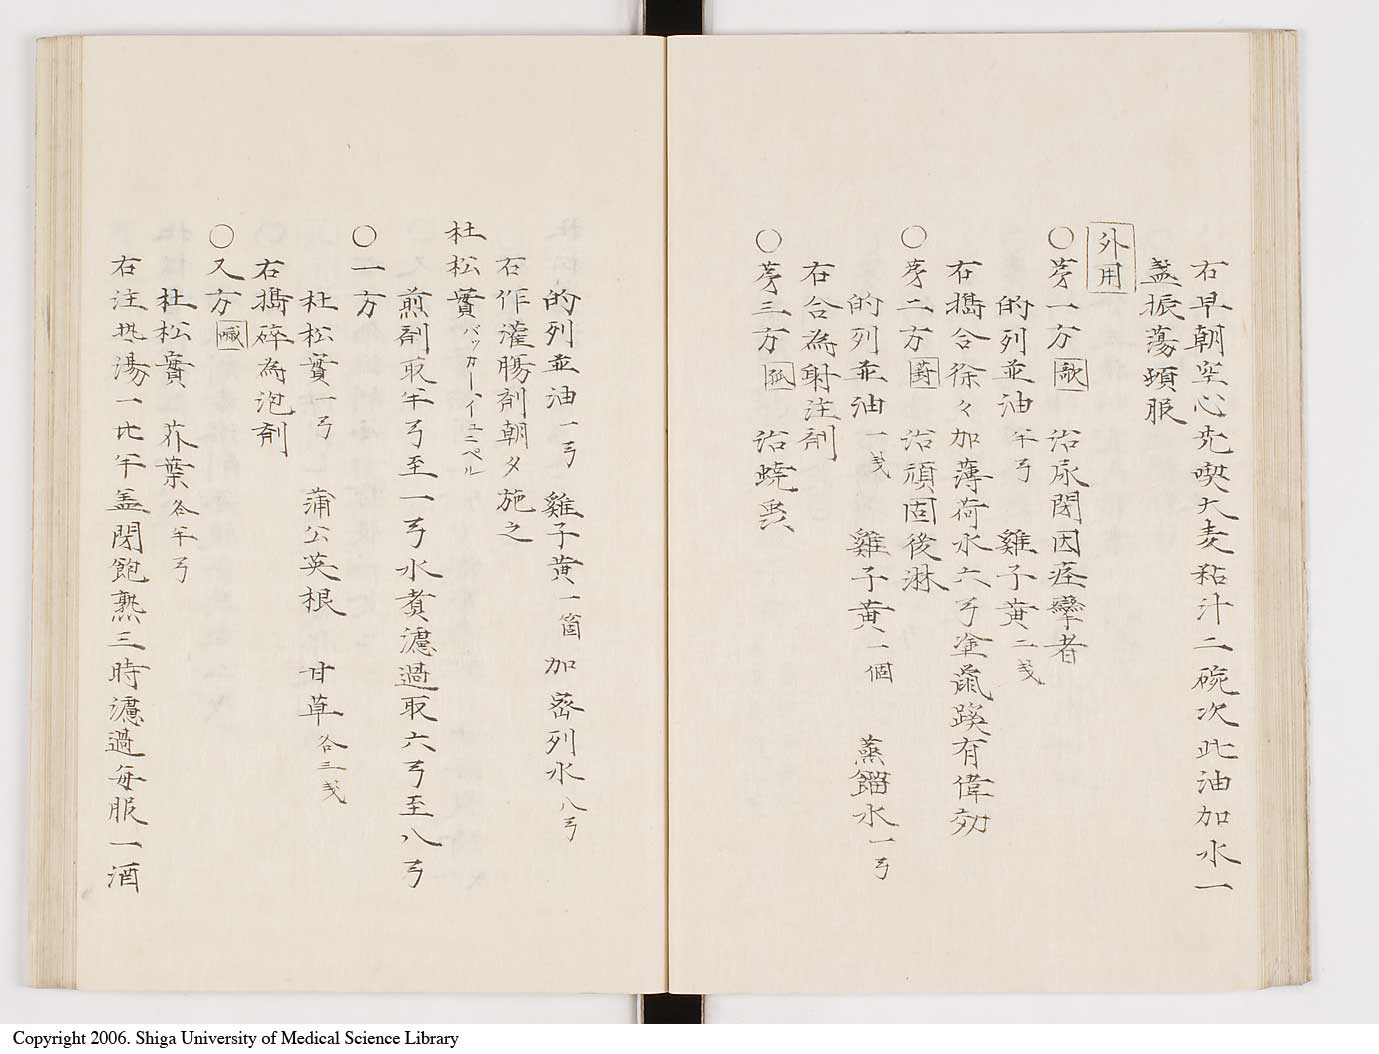 右早朝空心先喫大麦粘汁二碗次此油加水一
盞振蕩頓服
外用
〇苐一方 歇 治尿閉因痙攣者
的列並油 半弓 雞子黄 二戔
右擣合徐々加薄荷水六弓塗鼠蹊有偉効
〇苐二方 莤 治頑固後淋
的列並油 一戔 雞子黄 一個 蒸餾水 一弓
右合為射注剤
〇苐三方 孤 治蟯蟲
的列並油 一弓 雞子黄 一箇 加密列水 八弓
右作灌腸剤朝夕施之
杜松實 バッカーイユニペル
煎剤取半弓至一弓水煮濾過取六弓至八弓
〇一方
杜松實 一弓 蒲公英根 甘草 各三戔
右擣碎為泡剤
〇又方 噉
杜松實 芥葉 各半弓
右注热湯一比半盖閉飽熟三時濾過毎服一酒
Copyright 2006. Shiga University of Medical Science Library